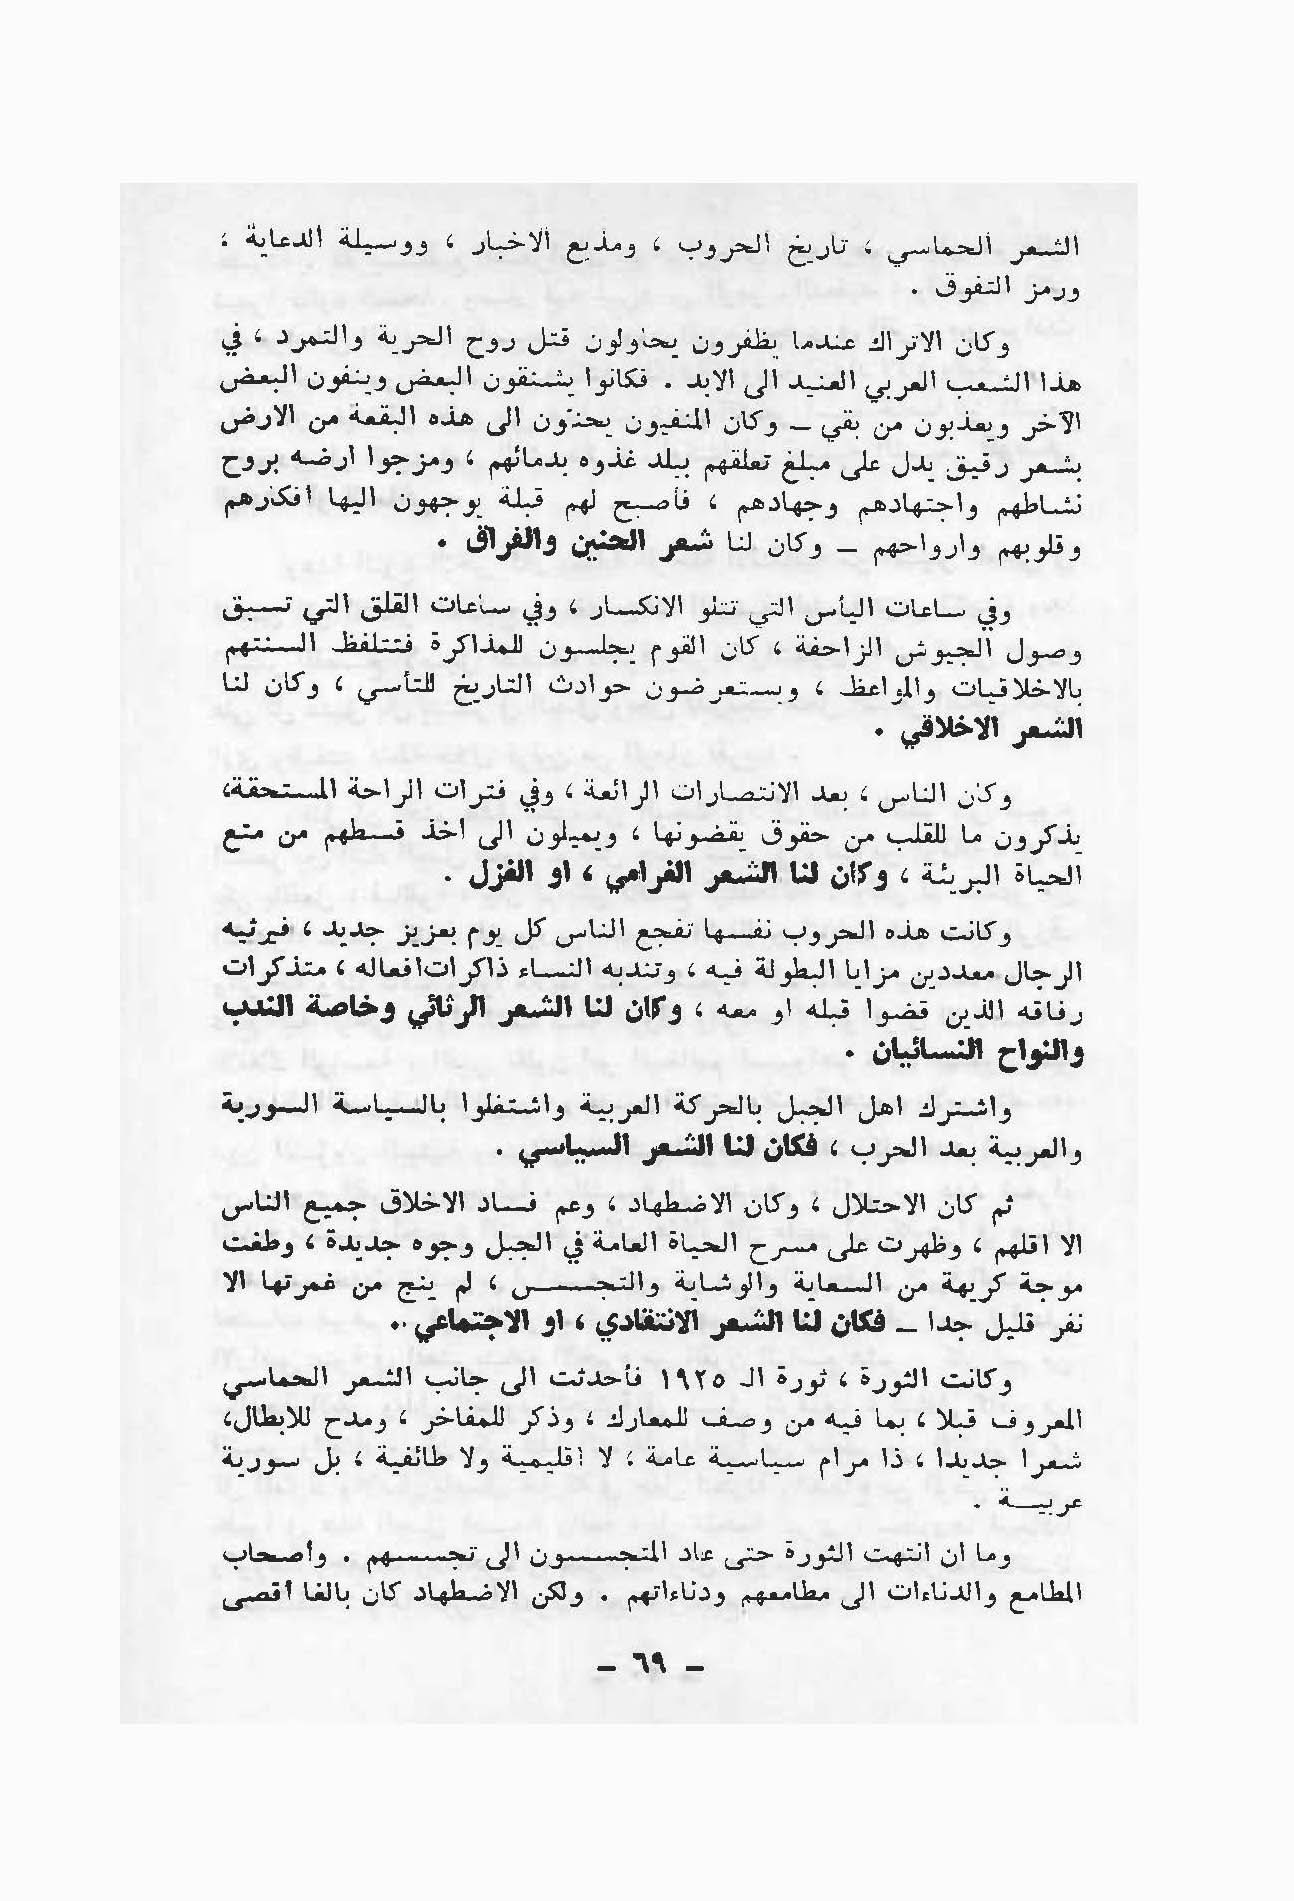 الشعر الحماسي ، تاريخ الحروب ، ومذيع الاخبار ، ووسيلة الدعاية ،
ورمز التفوق .
وكان الاتراك عندما يظفرون يحاولون قتل روح الحرية والتمرد ، في
هذا الشعب العربي العنيد الى الابد . فكانوا يشنقون البعض وينفون البعض
الآخر ويعذبون من بقي – وكان المنفيون يحنون الى هذه البقعة من الارض
بشعر رقيق يدل على مبلغ تعلقهم ببلد غذوه بدمائهم ، ومزجوا ارضه بروح
نشاطهم واجتهادهم وجهادهم ، فأصبح لهم قبلة يوجهون اليها افكارهم
وقلوبهم وارواحهم – وكان لنا شعر الحنين والفراق .
وفي ساعات اليأس التي تتلو الانكسار ، وفي ساعات القلق التي تسبق
وصول الجيوش الزاحفة ، كان القوم يجلسون للمذاكرة فتتلفظ السنتهم
بالاخلاقيات والمواعظ ، ويستعرضون حوادث التاريخ للتأسي ، وكان لنا
الشعر الاخلاقي .
وكان الناس ، بعد الانتصارات الرائعة ، وفي فترات الراحة المستحقة،
يذكرون ما للقلب من حقوق يقضونها ، ويميلون الى اخذ قسطهم من متع
الحياة البريئة ، وكان لنا الشعر الغرامي ، او الغزل .
وكانت هذه الحروب نفسها تفجع الناس كل يوم بعزيز جديد ، فيرثيه
الرجال معددين مزايا البطولة فيه ، وتندبه النساء ذاكرات افعاله ، متذكرات
رفاقه الذين قضوا قبله او معه ، وكان لنا الشعر الرثائي وخاصة الندب
والنواح النسائيان .
واشترك اهل الجبل بالحركة العربية واشتغلوا بالسياسة السورية
والعربية بعد الحرب ، فكان لنا الشعر السياسي .
ثم كان الاحتلال ، وكان الاضطهاد ، وعم فساد الاخلاق جميع الناس
الا اقلهم ، وظهرت على مسرح الحياة العامة في الجبل وجوه جديدة ، وطغت
موجة كريهة من السعاية والوشاية والتجسس ، لم ينج من غمرتها الا
نفر قليل جدا – فكان لنا الشعر الانتقادي ، او الاجتماعي .
وكانت الثورة ، ثورة الـ ١٩٢٥ فأحدثت الى جانب الشعر الحماسي
المعروف قبلا ، بما فيه من وصف للمعارك ، وذكر للمفاخر ، ومدح للابطال،
شعرا جديدا ، ذا مرام سياسية عامة ، لا اقليمية ولا طائفية ، بل سورية
عربيـة .
وما ان انتهت الثورة حتى عاد المتجسسون الى تجسسهم . وأصحاب
المطامع والدناءات الى مطامعهم ودناءاتهم . ولكن الاضطهاد كان بالغا أقصى
– ٦٩ –